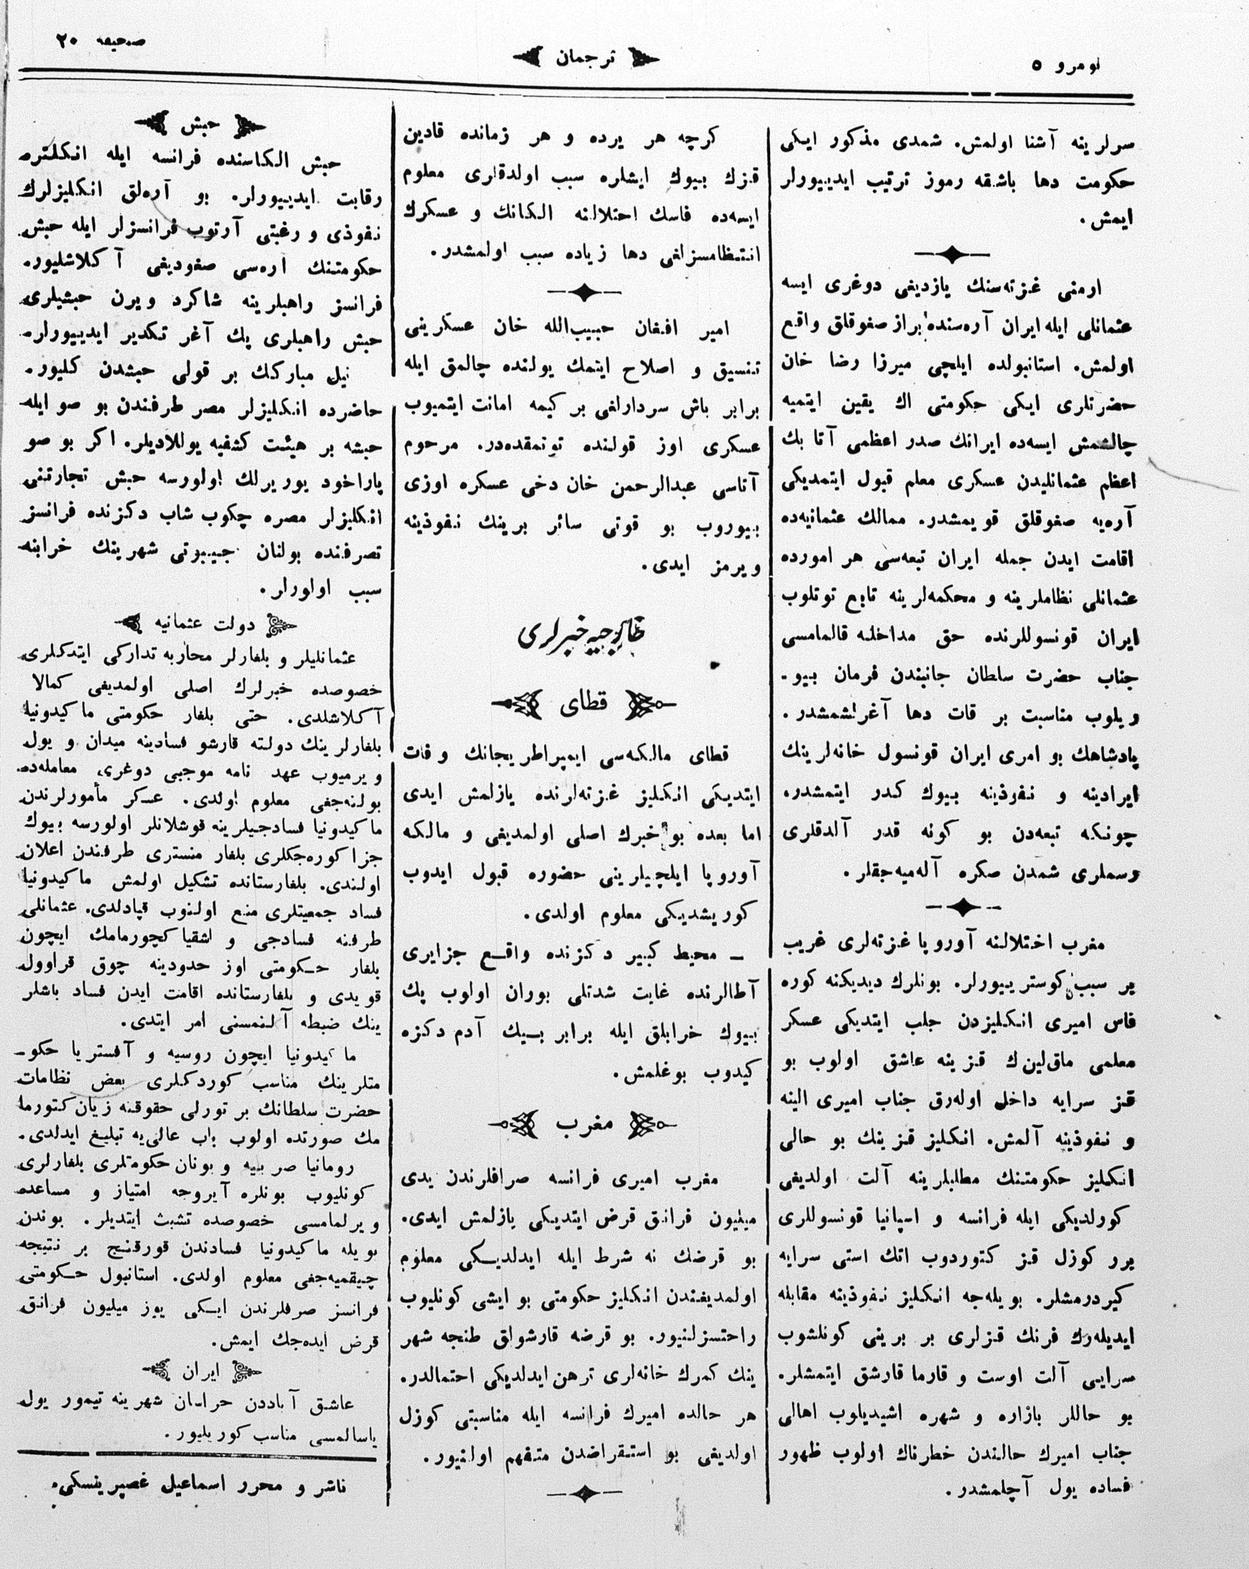 نومرو ٥
ترجمان
صحیفه ٢٠
سرلرینه آشنا اولمش. شمدی مذکور ایکی
حکومت دها باشقه رموز ترتیب ایدییورلر
ایمش.
ارمنی غزته‌سنك یازدیغی دوغری ایسه
عثمانلی ایله ایران آره‌سنده براز صغوقلق واقع
اولمش. استانبولده ایلچی میرزا رضا خان
حضرتلری ایکی حکومتی اك یقین ایتمیه
چالشمش ایسه‌ده ایرانك صدر اعظمی آتا بك
اعظم عثمانلیدن عسکری معلم قبول ایتمدیکی
آره‌یه صغوقلق قویمشدر. ممالك عثمانیه‌ده
اقامت ایدن جمله ایران تبعه‌سی هر امورده
عثمانلی نظاملرینه و محکمه‌لرینه تابع توتلوب
ایران قونسوللرنده حق مداخله قالمامسی
جناب حضرت سلطان جانبندن فرمان بیو-
ریلوب مناسبت بر قات دها آغرلشمشدر.
پادشاهك بو امری ایران قونسول خانه‌لرینك
ایرادینه و نفوذینه بیوك کدر ایتمشدر.
چونکه تبعه‌دن بو کونه قدر آلدقلری
رسملری شمدن صکره آله‌میه‌جقلر.
مغرب اختلالنه آوروپا غزته‌لری غریب
بر سبب کوسترییورلر. بونلرك دیدیکنه کوره
فاس امیری انکلیزدن جلب ایتدیکی عسکر
معلمی ماق‌لین‌ك قزینه عاشق اولوب بو
قز سرایه داخل اوله‌رق جناب امیری الینه
و نفوذینه آلمش. انکلیز قزینك بو حالی
انکلیز حکومتنك مطالبلرینه آلت اولدیغی
کورلدیکی ایله فرانسه و اسپانیا قونسوللری
برر کوزل قز کتوردوب اتك استی سرایه
کیردرمشلر. بویله‌جه انکلیز نفوذینه مقابله
ایدیله‌رك فرنك قزلری بر برینی کونلشوب
سرایی آلت اوست و قارما قارشق ایتمشلر.
بو حاللر بازاره و شهره اشیدیلوب اهالی
جناب امیرك حالندن خطرناك اولوب ظهور
فساده یول آچلمشدر.
کرچه هر یرده و هر زمانده قادین
قزك بیوك ایشلره سبب اولدقلری معلوم
ایسه‌ده فاسك احتلالنه الکانك و عسکرك
انتظامسزلغی دها زیاده سبب اولمشدر.
امیر افغان حبیب‌الله خان عسکرینی
تنسیق و اصلاح ایتمك یولنده چالمق ایله
برابر باش سردارلغی بر کیمه امانت ایتمیوب
عسکری اوز قولنده توتمقده‌در. مرحوم
آتاسی عبدالرحمن خان دخی عسکره اوزی
بیوروب بو قوتی سائر برینك نفوذینه
ویرمز ایدی.
خارجیه خبرلری
قطای
قطای مالکه‌سی ایمپراطریجانك وفات
ایتدیکی انکلیز غزته‌لرنده یازلمش ایدی
اما بعده بو خبرك اصلی اولمدیغی و مالکه
آوروپا ایلچیلرینی حضوره قبول ایدوب
کوریشدیکی معلوم اولدی.
ـ محیط کبیر دکزنده واقع جزایری
آطالرنده غایت شدتلی بوران اولوب پك
بیوك خرابلق ایله برابر بیك آدم دکزه
کیدوب بوغلمش.
مغرب
مغرب امیری فرانسه صرافلرندن یدی
میلیون فرانق قرض ایتدیکی یازلمش ایدی.
بو قرضك نه شرط ایله ایدلدیکی معلوم
اولمدیغندن انکلیز حکومتی بو ایشی کونلیوب
راحتسزلنیور. بو قرضه قارشولق طنجه شهر
ینك کمرك خانه‌لری ترهن ایدلدیکی احتمالدر.
هر حالده امیرك فرانسه ایله مناسبتی کوزل
اولدیغی بو استقراضدن متفهم اولنیور.
حبش
حبش الکاسنده فرانسه ایله انکلتره
رقابت ایدییورلر. بو آره‌لق انکلیزلرك
نفوذی و رغبتی آرتوب فرانسزلر ایله حبش
حکومتنك اره‌سی صغودیغی آکلاشلیور.
فرانسز راهبلرینه شاکرد ویرن حبشیلری
حبش راهبلری پك آغر تکدیر ایدییورلر.
نیل مبارکك بر قولی حبشدن کلیور.
حاضرده انکلیزلر مصر طرفندن بو صو ایله
حبشه بر هیئت کشفیه یوللادیلر. اکر بو صو
پاراخود یوریرلك اولورسه حبش تجارتنی
انکلیزلر مصره چکوب شاب دکزنده فرانسز
تصرفنده بولنان جیبوتی شهرینك خرابنه
سبب اولورلر.
دولت عثمانیه
عثمانلیلر و بلغارلر محاربه تدارکی ایتدکلری
خصوصده خبرلرك اصلی اولمدیغی کمالا
آکلاشلدی. حتی بلغار حکومتی ماکیدونیا
بلغارلرینك دولته قارشو فسادینه میدان و یول
ویرمیوب عهد نامه موجبی دوغری معامله‌ده
بولنه‌جغی معلوم اولدی. عسکر مأمورلرندن
ماکیدونیا فسادجیلرینه قوشلانلر اولورسه بیوك
جزا کوره‌جکلری بلغار منستری طرفندن اعلان
اولندی. بلغارستانده تشکیل اولمش ماکیدونیا
فساد جمعیتلری منع اولنوب قپادلدی. عثمانلی
طرفنه فسادجی و اشقیا کچورمامك ایچون
بلغار حکومتی اوز حدودینه چوق قراوول
قویدی و بلغارستانده اقامت ایدن فساد باشلر
ینك ضبطه آلنمسنی امر ایتدی.
ماکیدونیا ایچون روسیه و آفستریا حکو-
متلرینك مناسب کوردکلری بعض نظامات
حضرت سلطانك بر تورلی حقوقنه زیان کتورما
مك صورتده اولوب باب عالی‌یه تبلیغ ایدلدی.
رومانیا صربیه و یونان حکومتلری بلغارلری
کونلیوب بونلره آیروجه امتیاز و مساعده
ویرلمامسی خصوصده تشبث ایتدیلر. بوندن
بویله ماکیدونیا فسادندن قورقنج بر نتیجه
چیقمیه‌جغی معلوم اولدی. استانبول حکومتی
فرانسز صرفلرندن ایکی یوز میلیون فرانق
قرض ایده‌جك ایمش.
ایران
عاشق آباددن خراسان شهرینه تیمور یول
یاسالمسی مناسب کوریلیور.
ناشر و محرر اسماعیل غصپرینسکی.